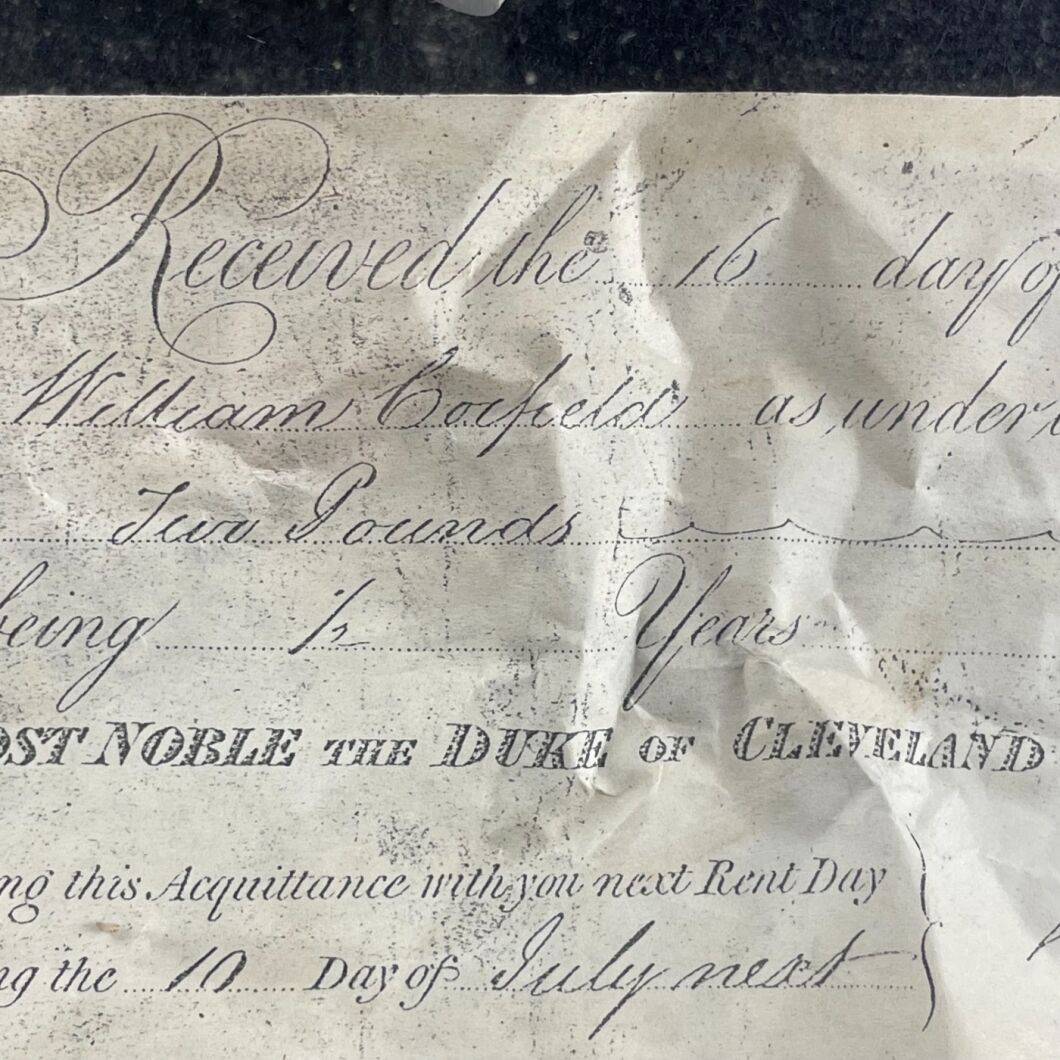 Received the 16 day of
William Corfield as under
Two Pounds
being 1/2 Years
OST NOBLE THE DUKE OF CLEVELAND
ng this Acquittance with you next Rent Day
ng the 10 Day of July next